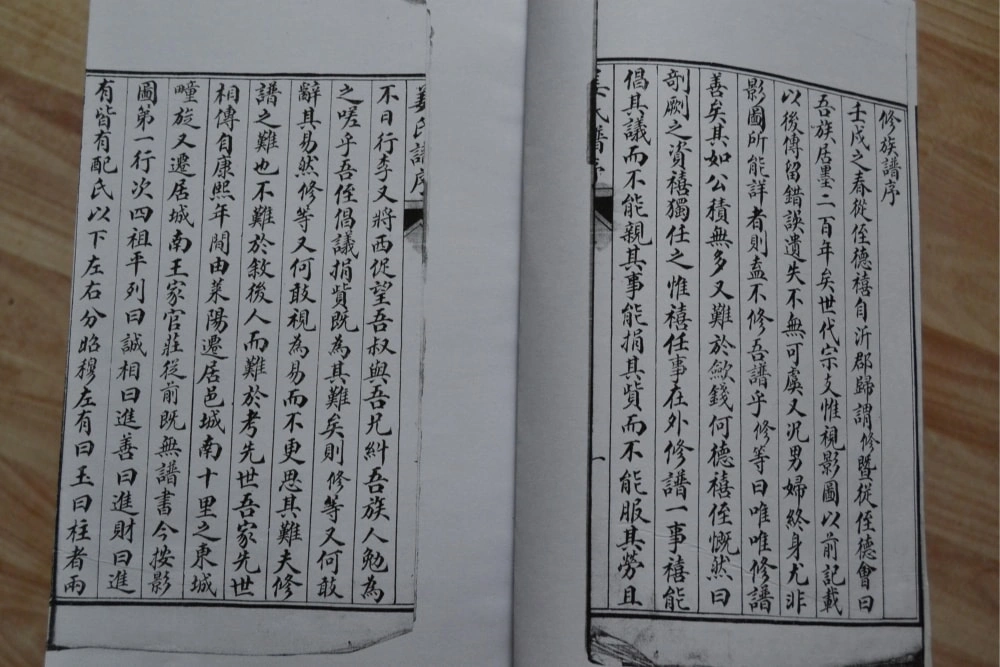 修族譜序
壬戌之春從侄德禧自沂郡歸謂修暨從侄德會曰
吾族居墨二百年矣世代宗支惟視影圖以前記載
以後傳留錯誤遺失不無可虞又況男婦終身尤非
影圖所能詳者則盍不修吾譜乎修等曰唯唯修譜
善矣其如公積無多又難於歛錢何德禧侄慨然曰
剞劂之資禧獨任之惟禧任事在外修譜一事禧能
倡其議而不能親其事能捐其貲而不能服其勞且
一
姜氏譜序
不日行李又將西促望吾叔與吾兄糾吾族人勉為
之嗟乎吾侄倡議捐貲既為其難矣則修等又何敢
辭其易然修等又何敢視為易而不更思其難夫修
譜之難也不難於敘後人而難於考先世吾家先世
相傳自康熙年間由萊陽遷居邑城南十里之東城
疃旋又遷居城南王家官莊從前既無譜書今按影
圖第一行次四祖平列曰誠相曰進善曰進財曰進
有皆有配氏以下左右分昭穆左有曰玉曰柱者兩